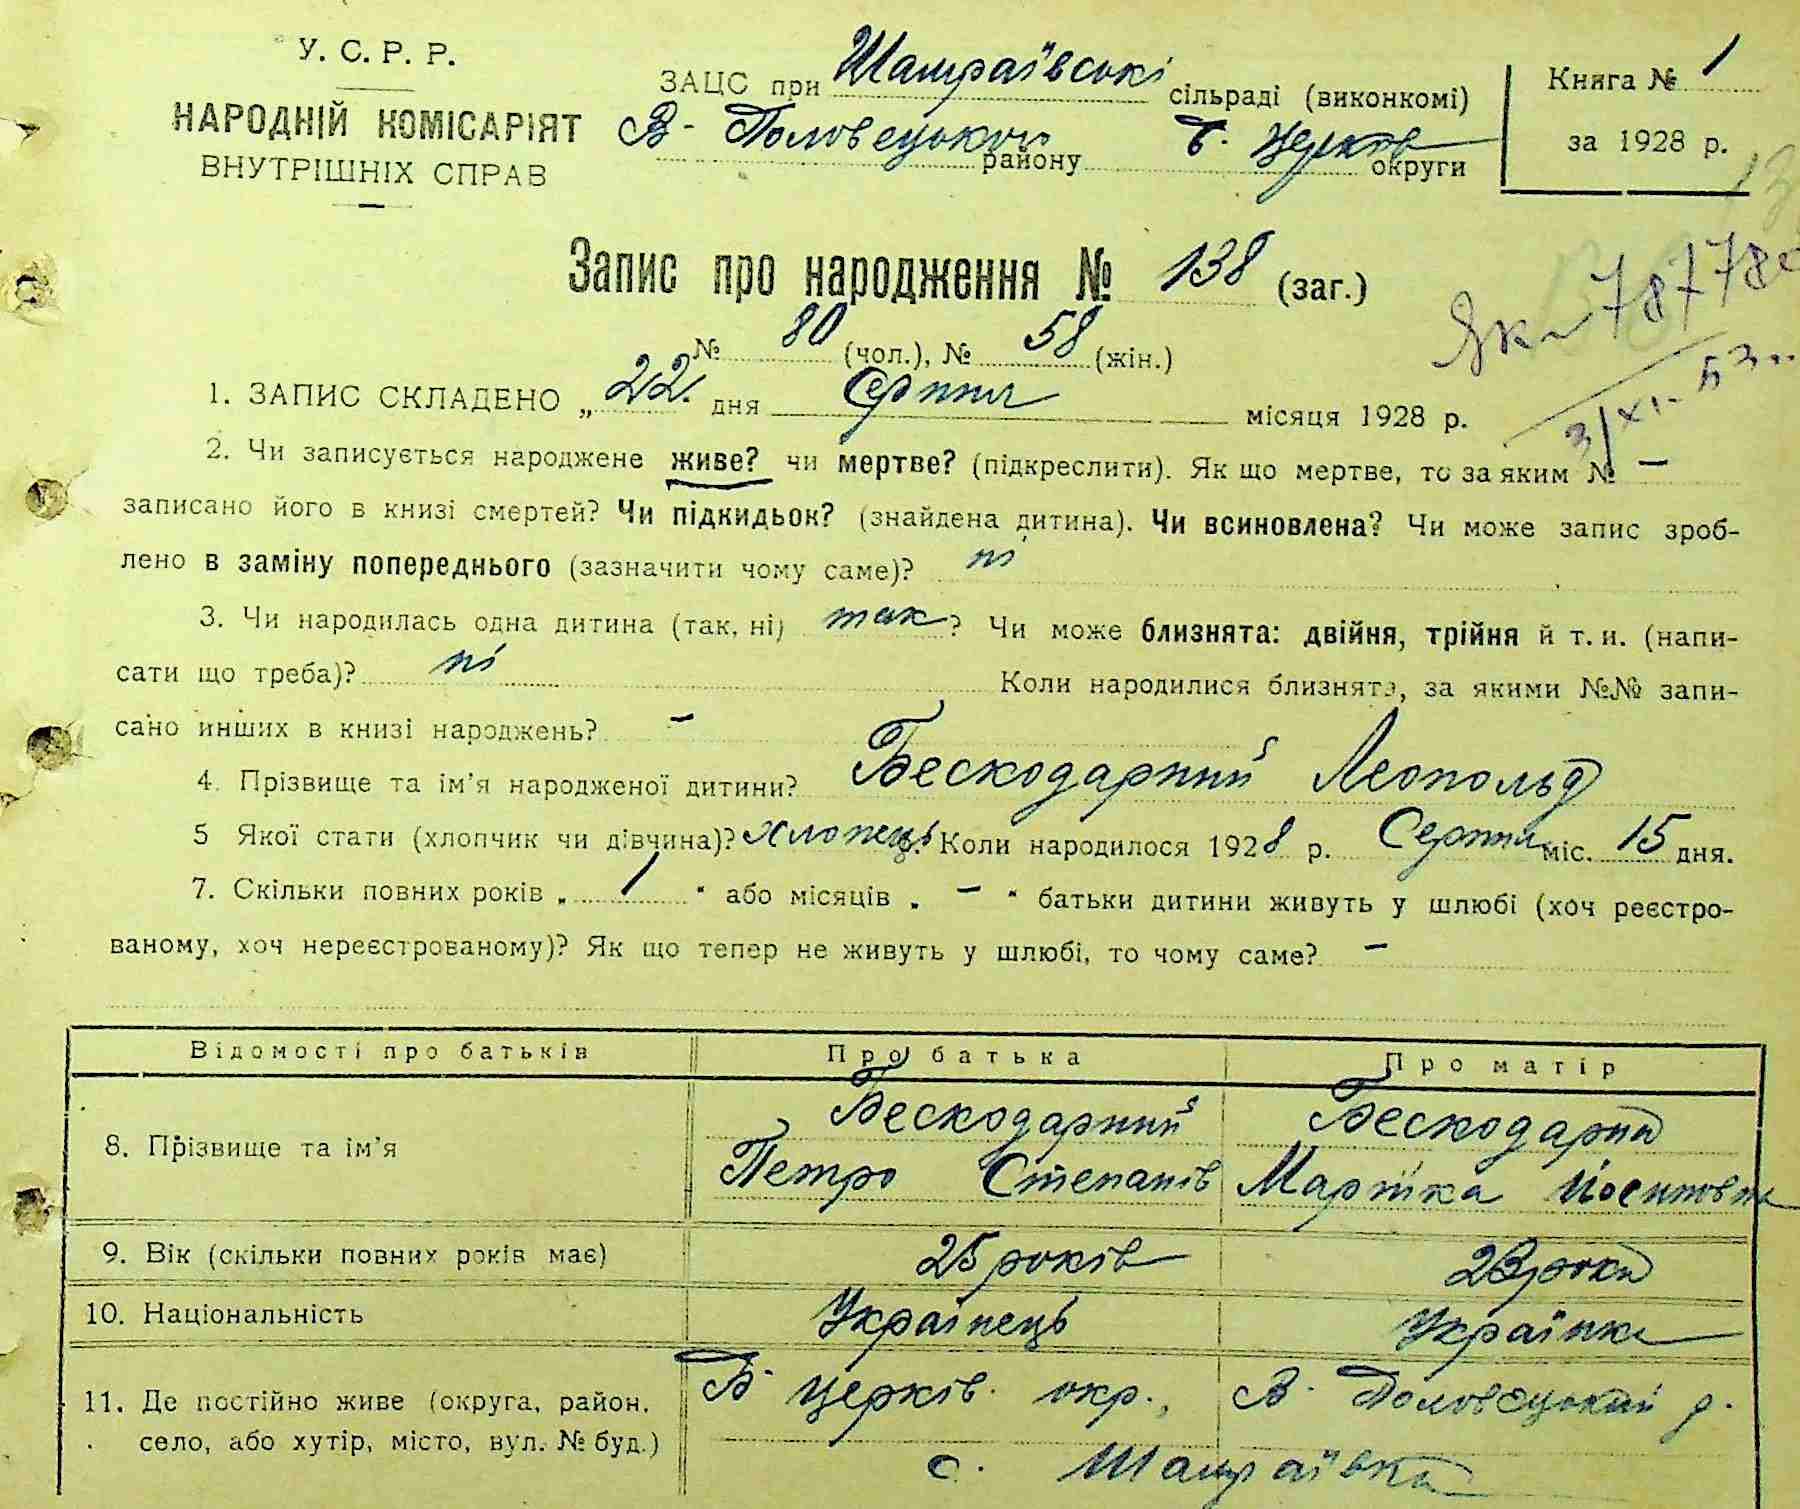 У. С. Р. Р.
НАРОДНІЙ КОМІСАРІЯТ
ВНУТРІШНІХ СПРАВ
ЗАЦС при Шамраївські сільраді (виконкомі)
В-Половецького району Б. Церків округи
Книга № 1
за 1928 р.
Запис про народження № 138 (заг.)
№ 80 (чол.), № 58 (жін.)
78778
3/XI-53
1. ЗАПИС СКЛАДЕНО „ 22. дня Серпня місяця 1928 р.
2. Чи записується народжене живе? чи мертве? (підкреслити). Як що мертве, то за яким № —
записано його в книзі смертей? Чи підкидьок? (знайдена дитина). Чи всиновлена? Чи може запис зроб-
лено в заміну попереднього (зазначити чому саме)? ні
3. Чи народилась одна дитина (так, ні) так ? Чи може близнята: двійня, трійня й т. и. (напи-
сати що треба)? ні Коли народилися близнята, за якими №№ запи-
сано инших в книзі народжень? —
4. Прізвище та ім'я народженої дитини? Бескодарний Леопольд
5 Якої стати (хлопчик чи дівчина)? хлопець. Коли народилося 1928 р. Серпня міс. 15 дня.
7. Скільки повних років „ 1 " або місяців „ — " батьки дитини живуть у шлюбі (хоч реєстро-
ваному, хоч нереєстрованому)? Як що тепер не живуть у шлюбі, то чому саме? —
Відомості про батьків Про батька Про матір
8. Прізвище та ім'я Бескодарний Бескодарна
Петро Степанів Марійка Йосиповна
9. Вік (скільки повних років має) 25 років 23 роки
10. Національність Українець Українка
11. Де постійно живе (округа, район, Б-церків. окр., В-Половецький р.
село, або хутір, місто, вул. № буд.) с. Шамраївка